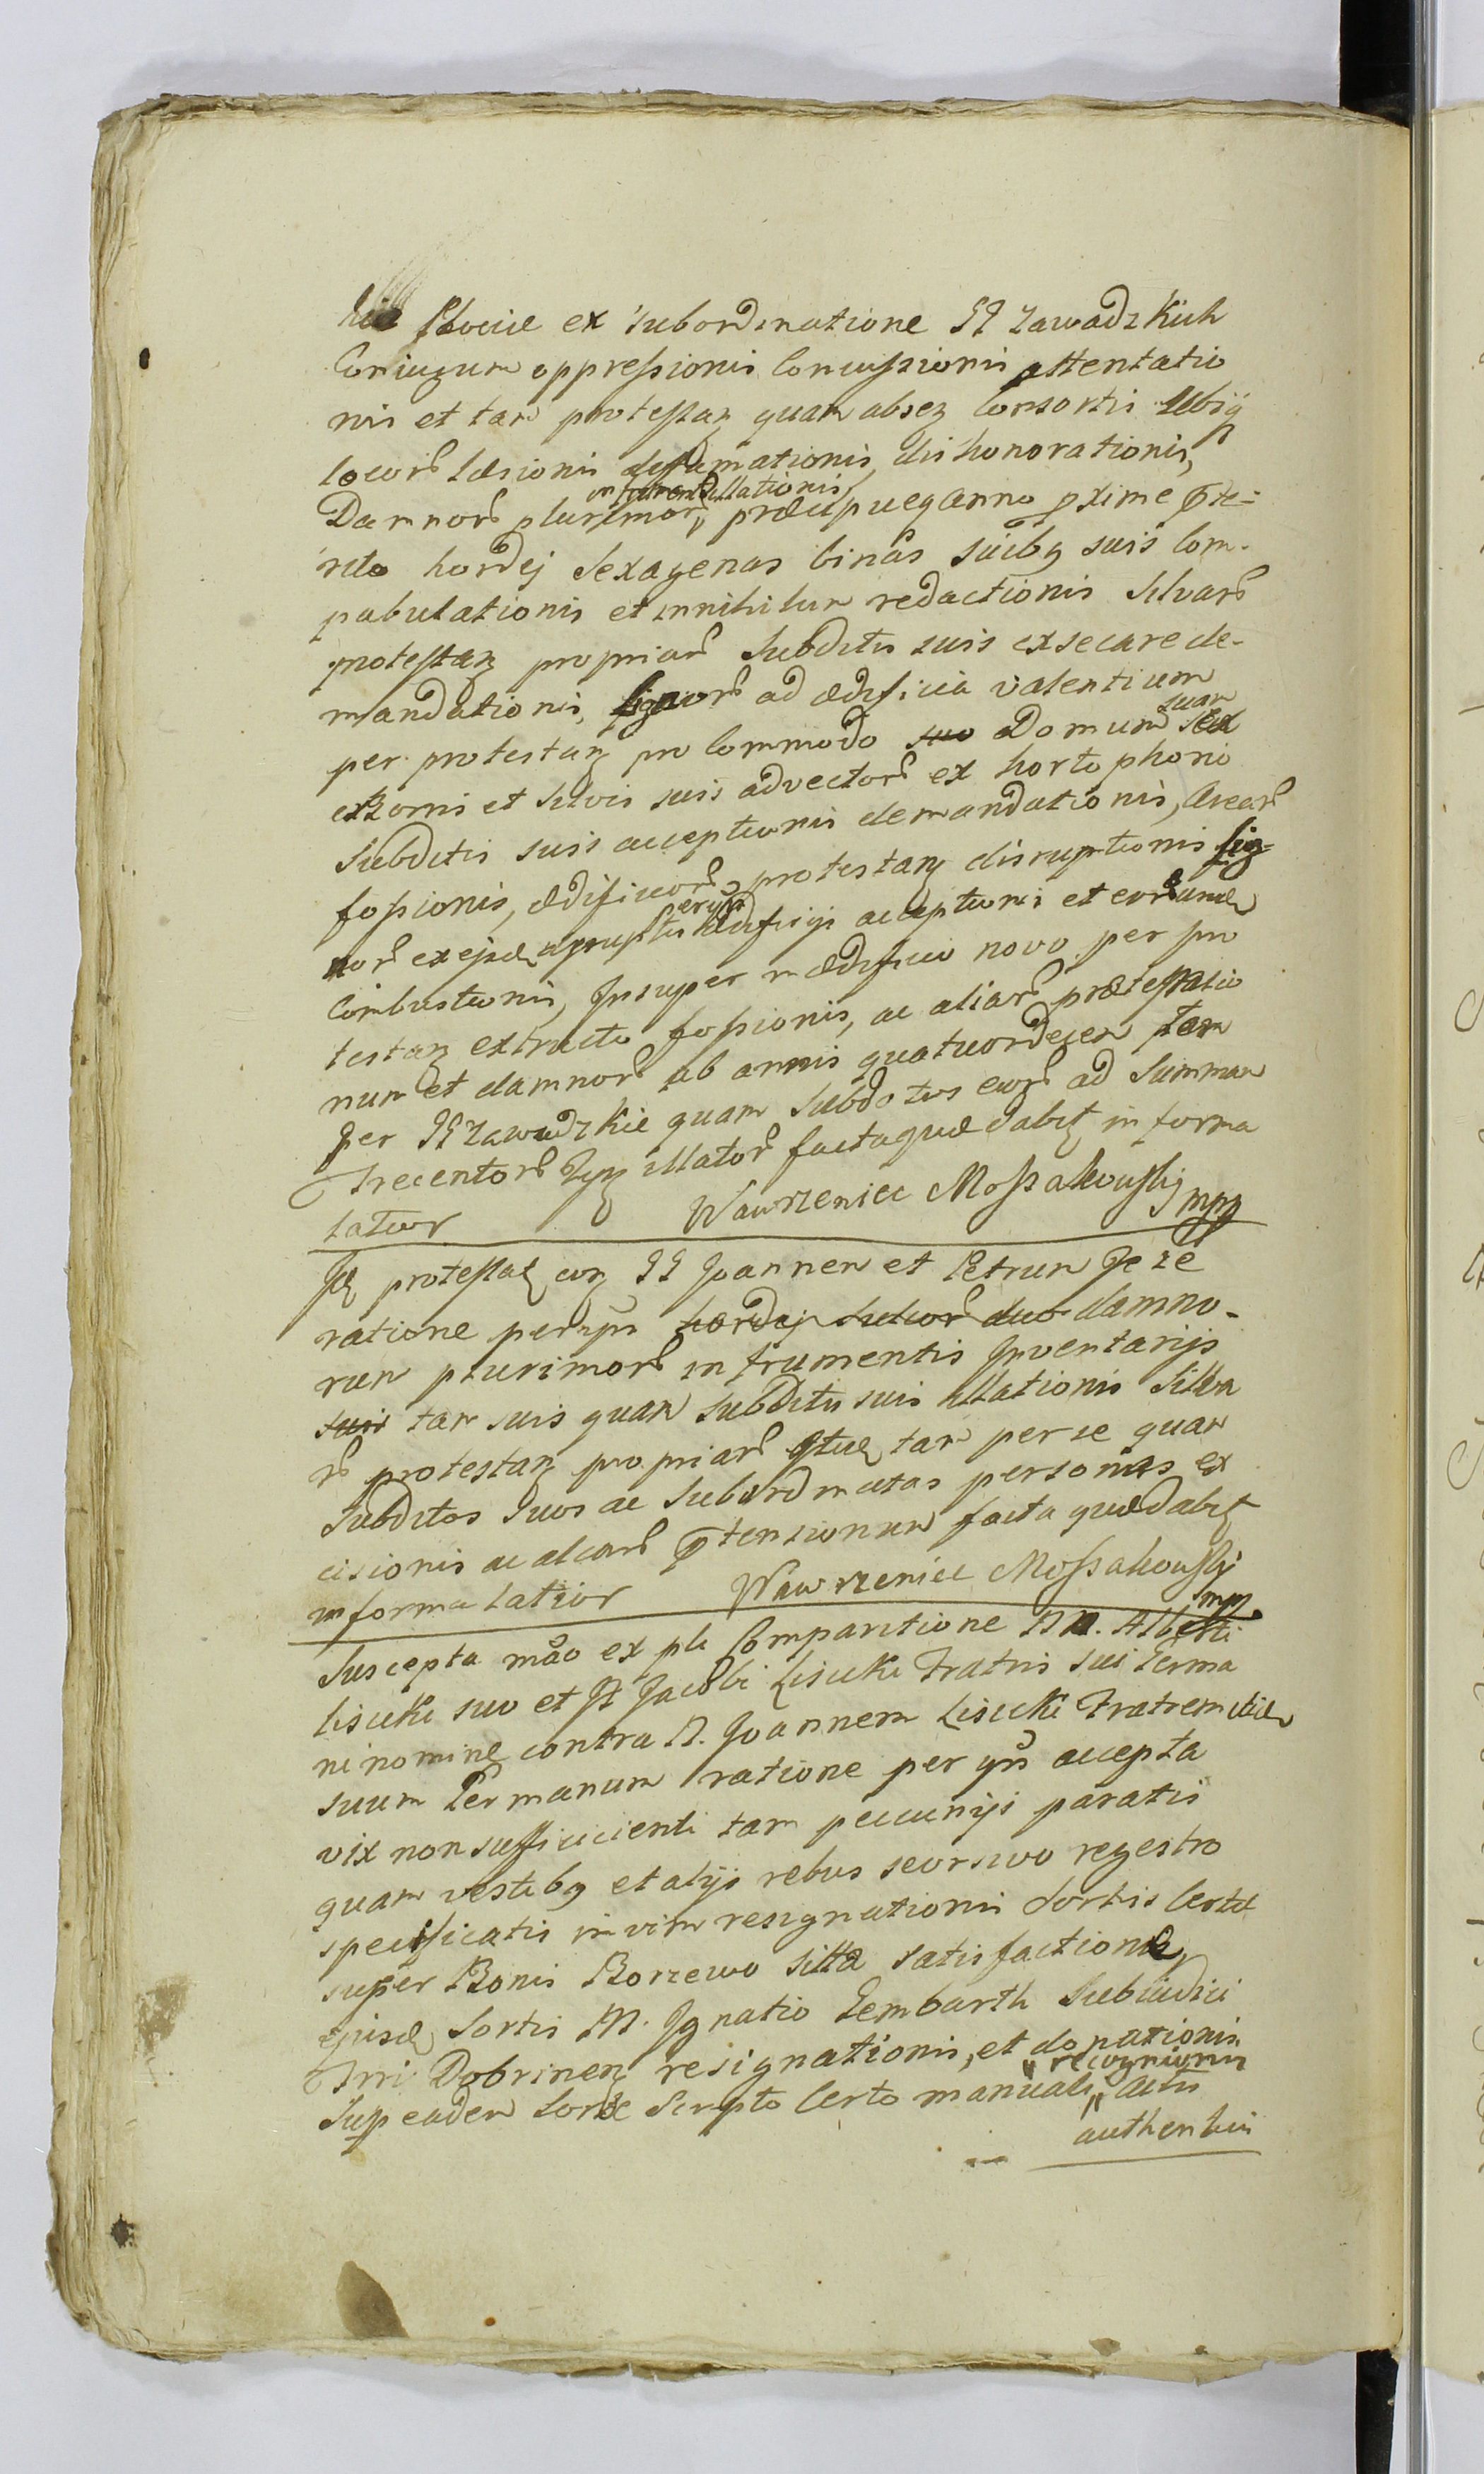 hic Plociae ex subordinatione GG Zawadzkich
Coniugum oppressionis Concussionis attentatio
nis et tam protestan quam absen Consortis ubiq
locor laesionis deffamationis, dishonorationis,
in frumen illationis
Damnor plurimor, praecipueq anno pxime prte=
rito hordej sexagenas binas suibq suis Com-
pabulationis et innihilum redactionis Silvar
protestan propriar Subditis suis exsecare de-
mandationis, lignor ad aedificia valentium
suam
per protestan pro Commodo suo Domum sua
ex Borni et silvis suis advector ex horto phono
Subditis suis acceptionis demandationis, Arear
fossionis, aedificior protestan disruptionis Lig-
nor ex ejsd disruptis aedificijs acceptionis et eorund
Combustionis, Insuper in aedificio novo per pro
testan extructo fossionis, ac aliar praetestatio
num et damnor ab annis quatuordecem tam
per GG Zawadzkie quam Subditos eor ad Summam
Trecentor Fpn illator facta quae dabit in forma
latior Wawrzeniec Mossakowski mpp
Id protestat con GG Joannem et Petrum Jeze
ratione per ips hordej sulcor duo damno-
rum plurimor in frumentis Inventarijs
suis tam suis quam Subditis suis illationis Silva
r protestan propriar tam per se quam
Subditos Suos ac Subordinatas personas ex
cisionis ac aliar prtensionum facta quae dabit
in forma latior Wawrzeniec Mossakowski
mpp
Suscepta mao ex pli Comparitione M. Alberti
Lisicki suo et G Jacobi Lisicki Fratris sui Germa
ni nomine contra M. Joannem Lisicki Fratrem itid
suum Germanum ratione per ips accepta
vix non sufficicienti tam pecunijs paratis
quam vestibq et alijs rebus seorsivo regestro
specificatis in vim resignationis Sortis Certae
super Bonis Borzewo sitta satisfactione
ejusd Sortis M. Ignatio Zembarth Subiudici
Trri Dobrinen resignationis, et donationis
" recognionis
Sup eadem sorte Scripto Certo manuali " actis
authentici